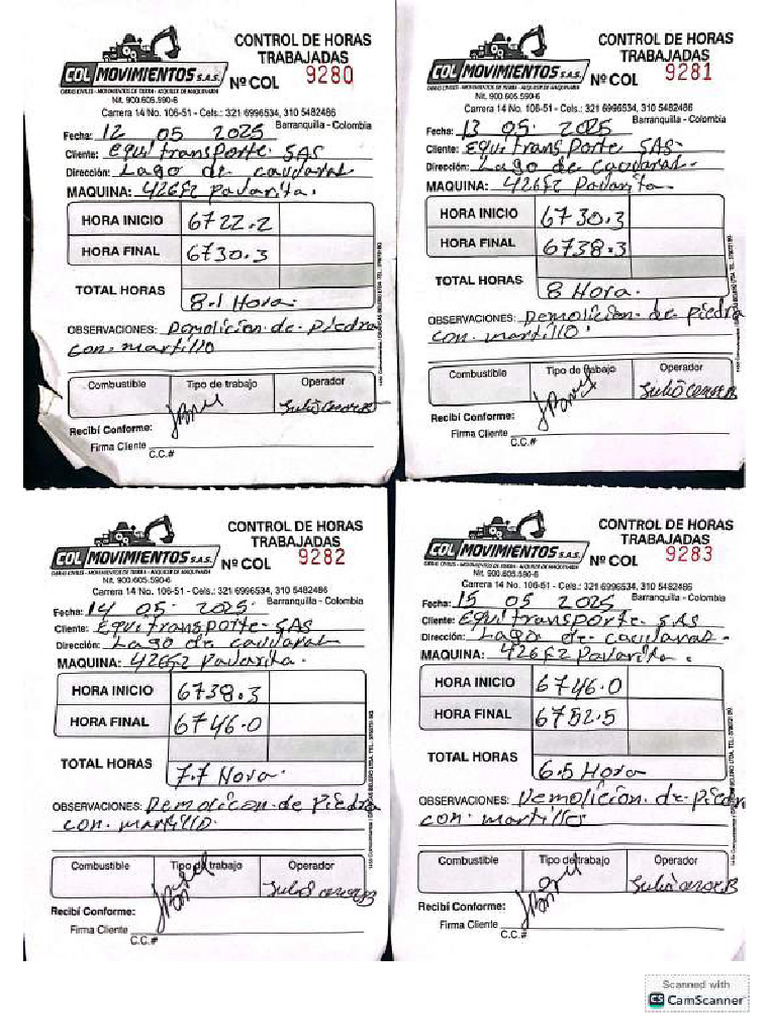 COL MOVIMIENTOS S.A.S.
OBRAS CIVILES - MOVIMIENTOS DE TIERRA - ALQUILER DE MAQUINARIA
Nit. 900.605.590-6
CONTROL DE HORAS
TRABAJADAS
Nº COL 9280
Carrera 14 No. 106-51 - Cels.: 321 6996534, 310 5482486
Barranquilla - Colombia
Fecha: 12 05 2025
Cliente: Equitransporte. SAS
Dirección: Lago de caujaral
MAQUINA: 426F2 Pavarita.
HORA INICIO 6722.2
HORA FINAL 6730.3
TOTAL HORAS 8.1 Hora.
OBSERVACIONES: Demolicion de piedra
con. martillo
Combustible Tipo de trabajo Operador
Julio Cesar B
Recibí Conforme:
Firma Cliente
C.C.#
COL MOVIMIENTOS S.A.S.
OBRAS CIVILES - MOVIMIENTOS DE TIERRA - ALQUILER DE MAQUINARIA
Nit. 900.605.590-6
CONTROL DE HORAS
TRABAJADAS
Nº COL 9281
Carrera 14 No. 106-51 - Cels.: 321 6996534, 310 5482486
Barranquilla - Colombia
Fecha: 13 05. 2025
Cliente: Equitransporte SAS.
Dirección: Lago de caujaral.
MAQUINA: 426F2 Pavarita.
HORA INICIO 6730.3
HORA FINAL 6738.3
TOTAL HORAS 8 Hora.
OBSERVACIONES: Demolicion. de piedra
con. martillo.
Combustible Tipo de trabajo Operador
Julio Cesar B
Recibí Conforme:
Firma Cliente
C.C.#
COL MOVIMIENTOS S.A.S.
OBRAS CIVILES - MOVIMIENTOS DE TIERRA - ALQUILER DE MAQUINARIA
Nit. 900.605.590-6
CONTROL DE HORAS
TRABAJADAS
Nº COL 9282
Carrera 14 No. 106-51 - Cels.: 321 6996534, 310 5482486
Barranquilla - Colombia
Fecha: 14 05. 2025.
Cliente: Equitransporte. SAS
Dirección: Lago de caujaral
MAQUINA: 426F2 Pavarita.
HORA INICIO 6738.3
HORA FINAL 6746.0
TOTAL HORAS 7.7 Hora.
OBSERVACIONES: Demolicon. de Piedra
con. martillo.
Combustible Tipo de trabajo Operador
Julio cesar B
Recibí Conforme:
Firma Cliente
C.C.#
COL MOVIMIENTOS S.A.S.
OBRAS CIVILES - MOVIMIENTOS DE TIERRA - ALQUILER DE MAQUINARIA
Nit. 900.605.590-6
CONTROL DE HORAS
TRABAJADAS
Nº COL 9283
Carrera 14 No. 106-51 - Cels.: 321 6996534, 310 5482486
Barranquilla - Colombia
Fecha: 15 05 2025
Cliente: Equitransporte. SAS
Dirección: Lago de caujaral.
MAQUINA: 426F2 Pavarita.
HORA INICIO 6746.0
HORA FINAL 6752.5
TOTAL HORAS 6.5 Hora
OBSERVACIONES: Demolicion. de Piedra
con. martillo
Combustible Tipo de trabajo Operador
Julio cesar B
Recibí Conforme:
Firma Cliente
C.C.#
Scanned with
CS CamScanner